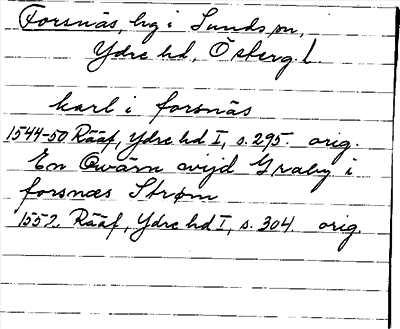 Forsnäs, hg i Sunds sn,
Ydre hd, Österg. l.
karl i forsnäs
1544-50. Rääf, Ydre hd I, s. 295. orig.
En Qwärn wijd Graby i
forsnæs Strøm
1552. Rääf, Ydre hd I, s. 304. orig.